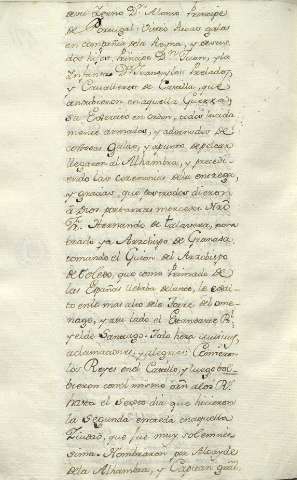 de su Yerno Dn. Alonso Principe
de Portugal: Vistió ricas galas
en compañia de la Reyna, y de sus
dos hijos, Principe Dn. Juan, y la
Infanta Da. Juana, los Prelados,
y Cavalleros de Castilla, que
estubieron en aquella Guerra, y
su Exercito en orden, todos lucida
mente armados, y adornados de
costosas galas, y apunto de pelear
llegaron al Alhambra, y precedi
endo las ceremonias de la entrega
y gracias, que postrados dieron
à Dios por tantas mercedes.
Fr. Hernando de Talavera, nom
brado ya Arzobispo de Granada,
tomando el Guion del Arzobispo
de Toledo, que como Primado de
las Españas llebaba delante, le
en lo mas alto de la Torre del ome
nage, y a su lado el Estandarte Rl.
y el de Santiago.
aclamaciones, y alegrias
los Reyes en el Castillo, y luego
del mismo
hasta el sexto dia que hicieron
la segunda entrada en aquella
Ziudad, que fue muy solemnis
sima. Nombraron por Alcayde
de la Alhambra, y Capitan gral.